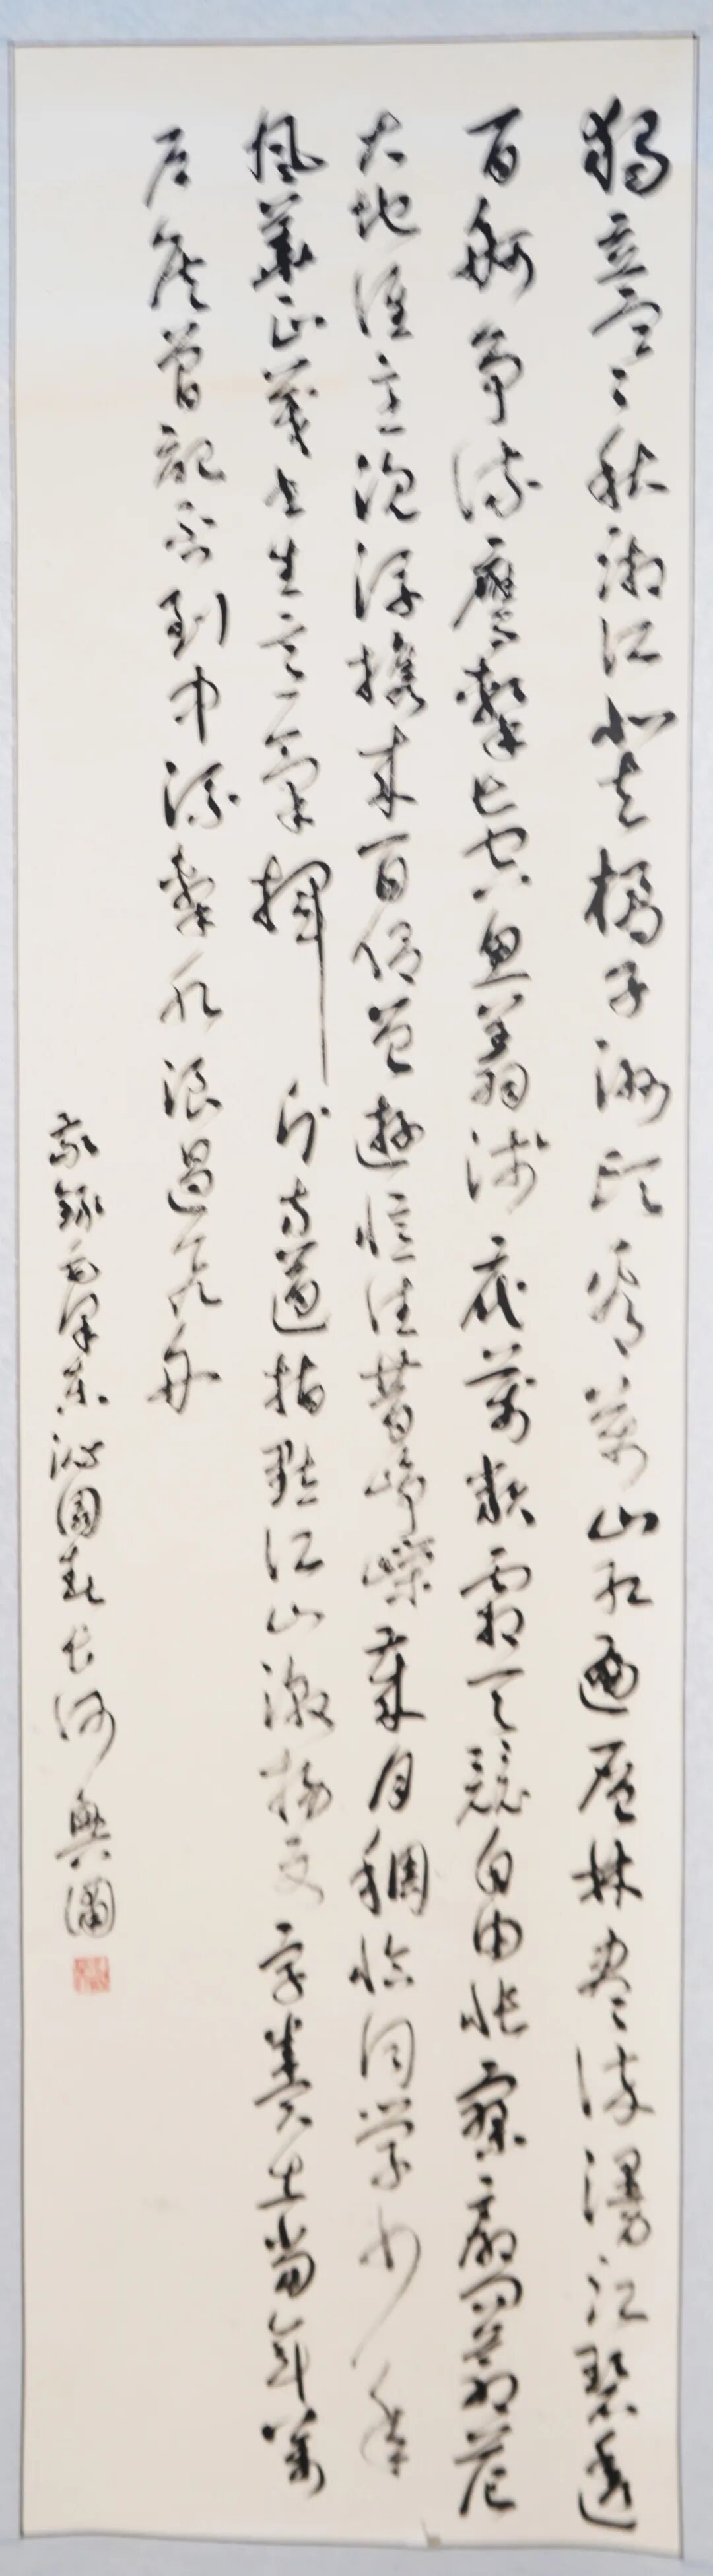 獨立寒秋湘江北去橘子洲头看萬山红遍层林尽染漫江碧透
百舸争流鹰擊长空魚翔浅底萬類霜天競自由怅寥廓問蒼茫
大地谁主沉浮携来百侣曾遊憶往昔峥嵘歲月稠恰同学少年
風華正茂书生意氣揮斥方遒指點江山激扬文字糞土當年萬
户侯曾記否到中流擊水浪遏飞舟
敬録毛泽东沁園春长沙